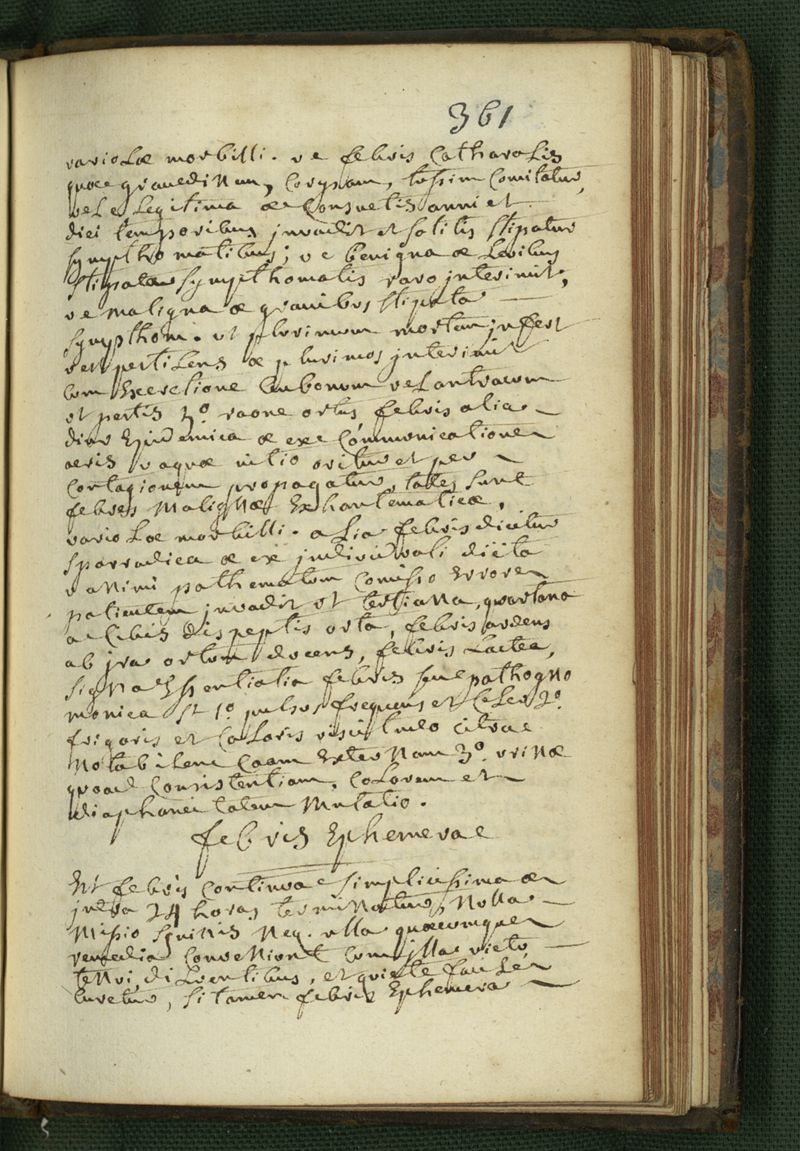 361
variolæ morbilli. v e febris Catharalis
quæ grauedinem, Coryzam, tussim Comitatur,
vel e Legitima æ Consuetis anni et
diei temporibus jnvadit et solitis stipatur
sympthomatibus; v e benigna æ Levibus
stipatur sympthomatis raro jnterimit,
v e maligna æ grauibus stipata
sympthom. ut plurimum mortem jnfert
v est pestilens æ plurimos jnterimit
Cum Exeretione bubonum vel antracum
ut pestis 3º. raone ortus febris alia
dicr Epidemica æ exe Communicatione
aeris vaquæ uitio oritur et per
Contagionem propagatur, tales sunt
febres Malignæ Exhantematicæ,
variolæ morbilli. alia febris dicitur
sporradica æ ex jndividuali diæta
v animi pathematum Comisso Errore
patientem jnvadit ut tertiana, quartana
a Cibis dispeptis orta, febris ardens
ab jra ortum ducens, febris Lactea,
signa Essentialia febris siue pathogno
monica st 1º. pulsus frequens et Celer 2º.
frigoris et Caloris vicissitudo citra
Notabilem Caam Externam 3º. vrinæ
quoad Consistentiam, Colorem et
diaphaneitatem Mutatio.
febris Ephemerae
Est febris Continua e simplicissima æ
jntra 24 horas terminatur, Nulla
Missio sguinis Neq. ulla quæcumque
remedia Conveniont Cum jlla victo
tenui, diluentibus, et quiete facile
Curetur, si tamen febris Ephemera